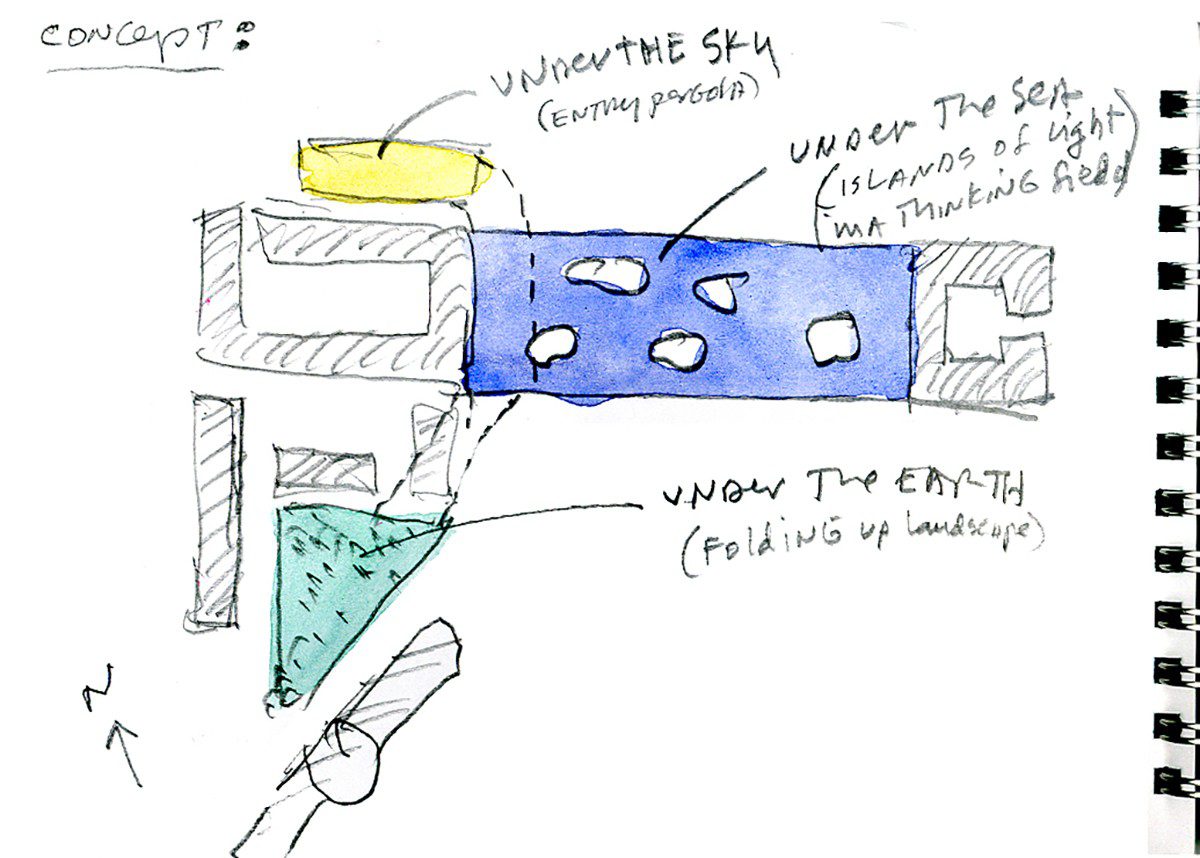 CONCEPT:
UNDER THE SKY
(ENTRY PERGOLA)
UNDER The SEA
(ISLANDS of Light
in A THINKING field)
UNDER The EARTH
(FOLDING UP landscape)
N